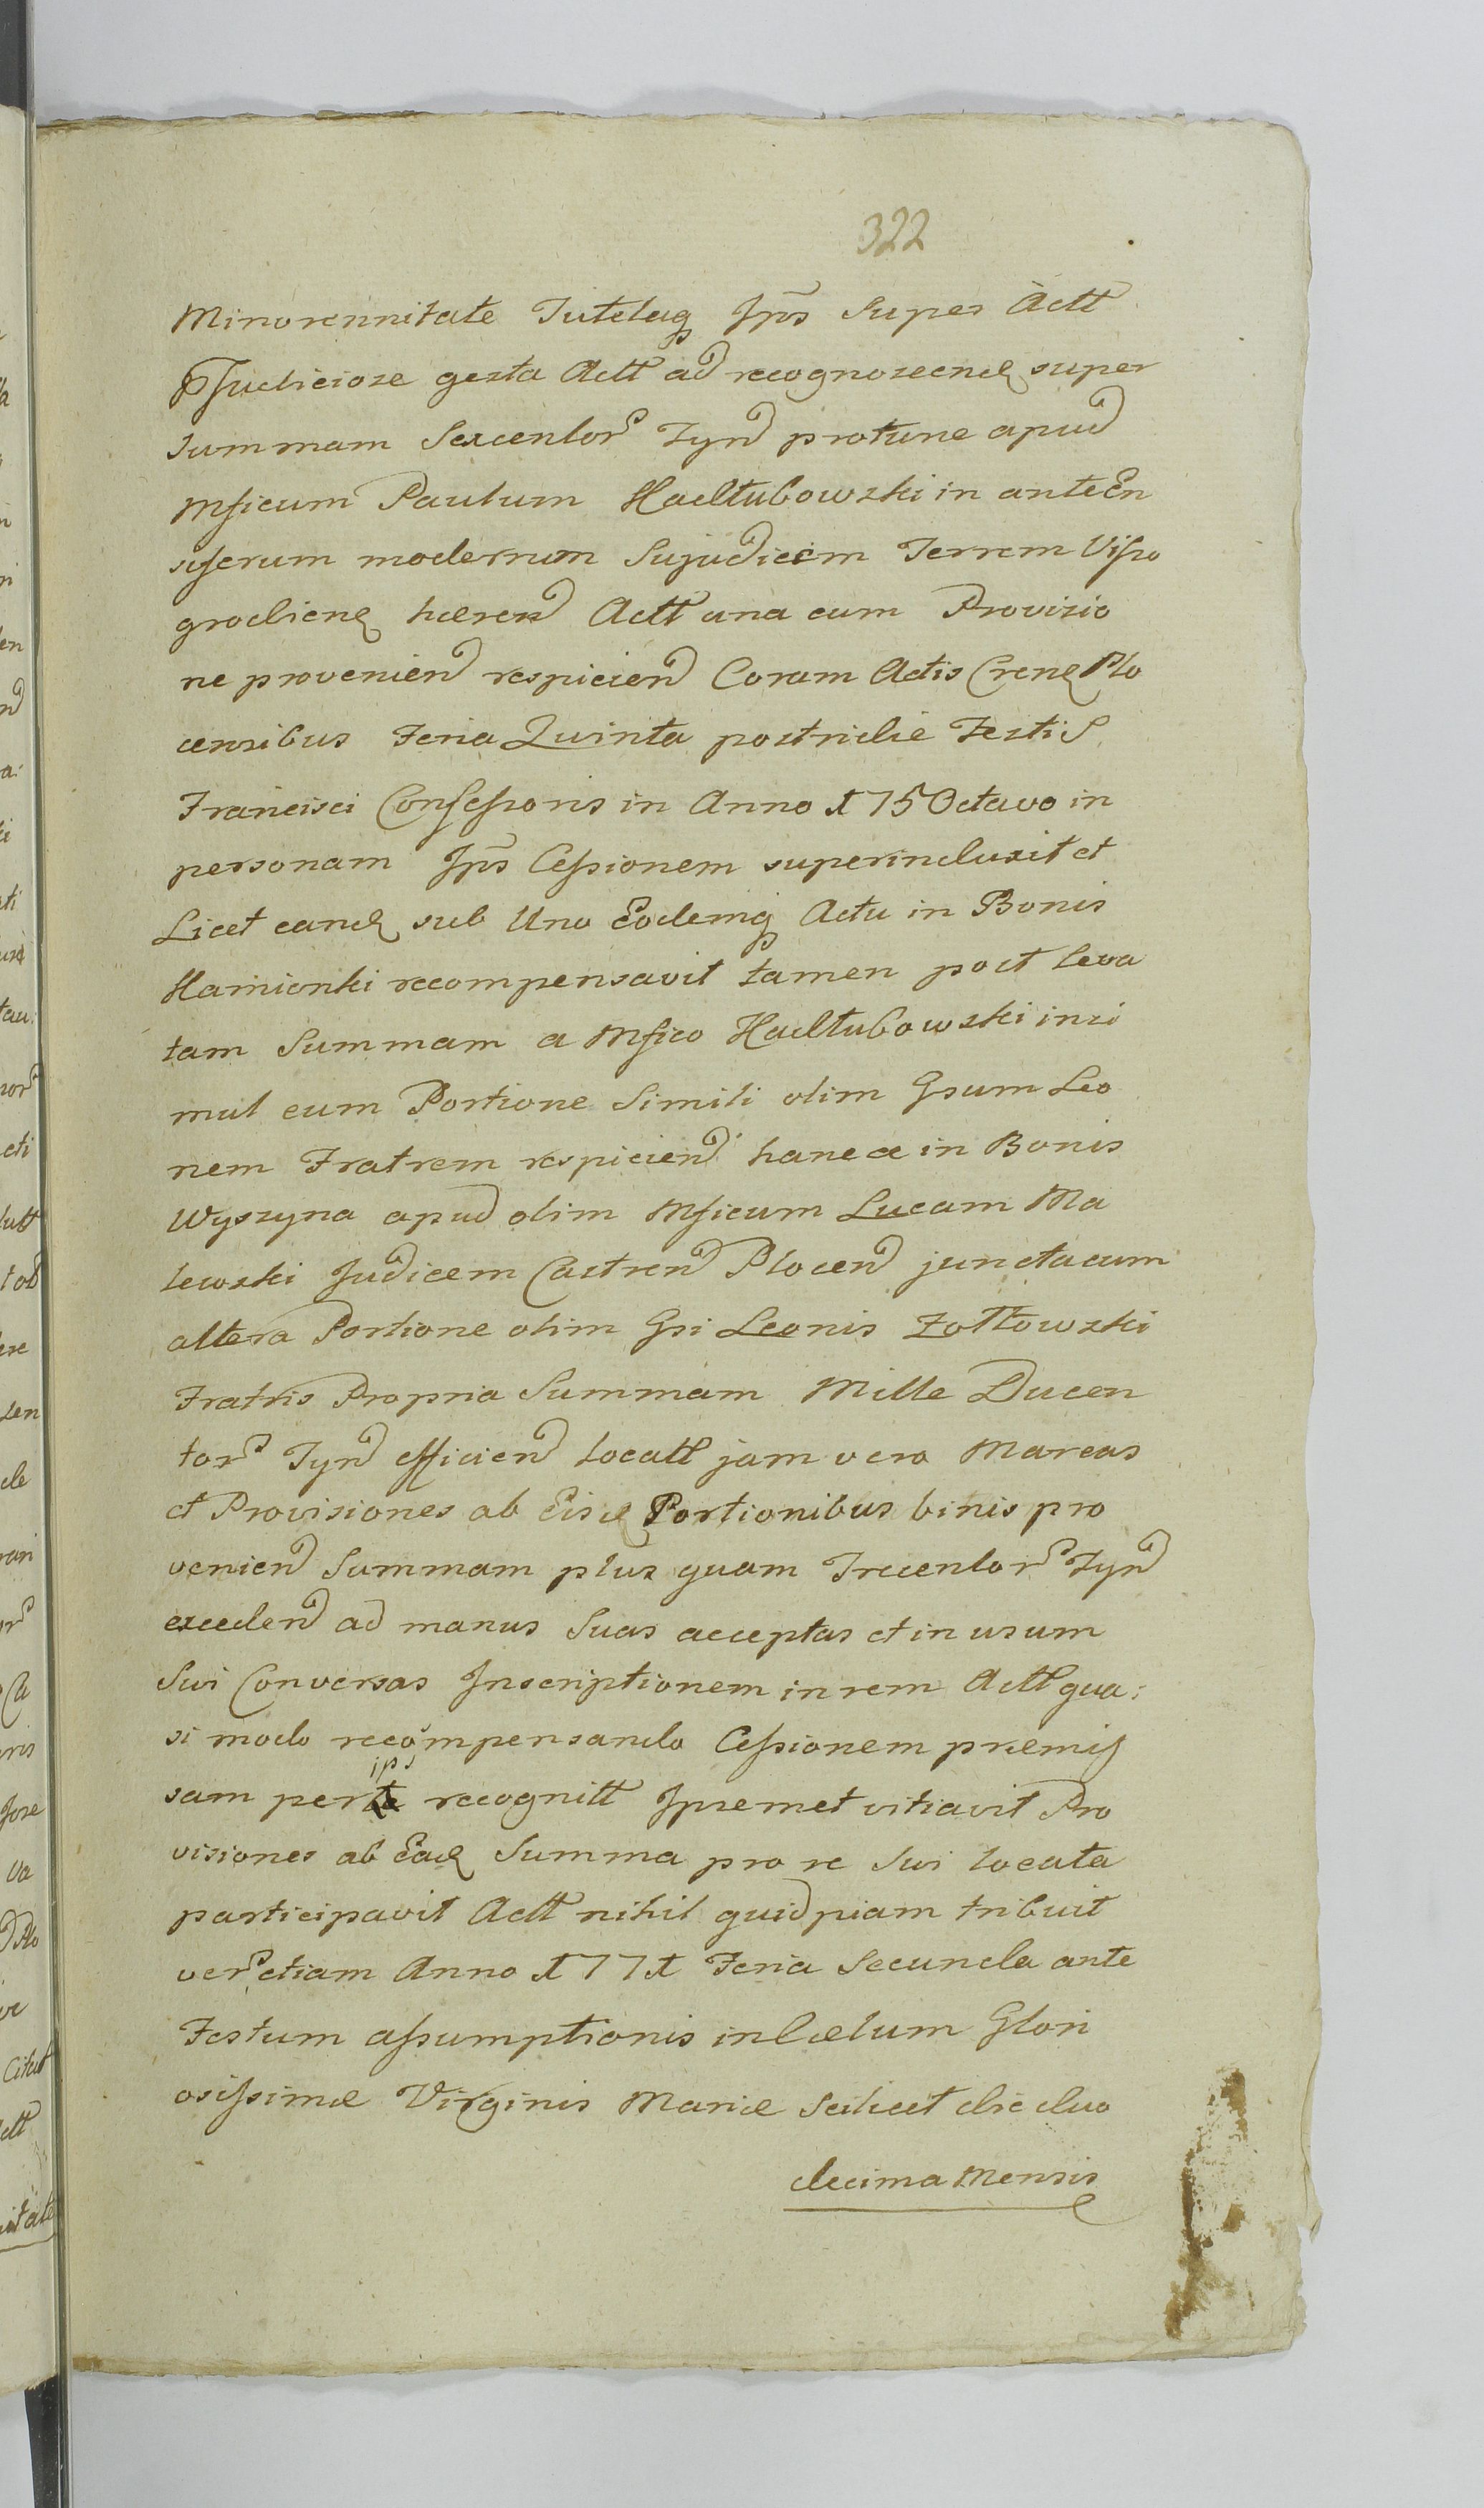 322
Minorennitate Tutelaq Ips̄ Super Actt
pjudiciose gesta Actt ad recognoscend super
summam Sexcentor Tynd protunc apud
Mficum Paulum Kadłubowski in antecen
ssserum modernum Sujudicem Terrem Visso
grodiens hæren Actt una cum Provisio
ne provenien respicien Coram Actis Crens Plo
censibus Feria Quinta postridie Festi S
Francisci Confessoris in Anno 175 Octavo in
personam Ips̄ Cessionem superinduxit et
Licet eand sub Uno Eodemq Actu in Bonis
Kamionki recompensavit tamen post leva
tam Summam a Mfico Kadłubowski insi
mul cum Portione Simili olim Gsum Leo
nem Fratrem respicien hancce in Bonis
Wyszyna apud olim Mficum Lucam Ma
lewski Judicem Castren Plocen junctacum
altera Portione olim Gsi Leonis Zołtowski
Fratris Propria Summam Mille Ducen
tor Tynd efficien locatt jam vero Marcas
et Provisiones ab Eisd Portionibus binis pro
venien Summam plus quam Trecentor Tynd
exceden ad manus Suas acceptas et in usum
Sui Conversas Inscriptionem in rem Actt qua:
si modo recompensando Cessionem præmis
ips
sam per recognitt Ipsemet vitiavit Pro
visiones ab Ead Summa pro re Sui locata
participavit Actt nihil quidpiam tribuit
ver etiam Anno 1771 Feria Secunda ante
Festum assumptionis in Cælum Glori
osissimæ Virginis Mariæ Scilicet die duo
decima Mensis